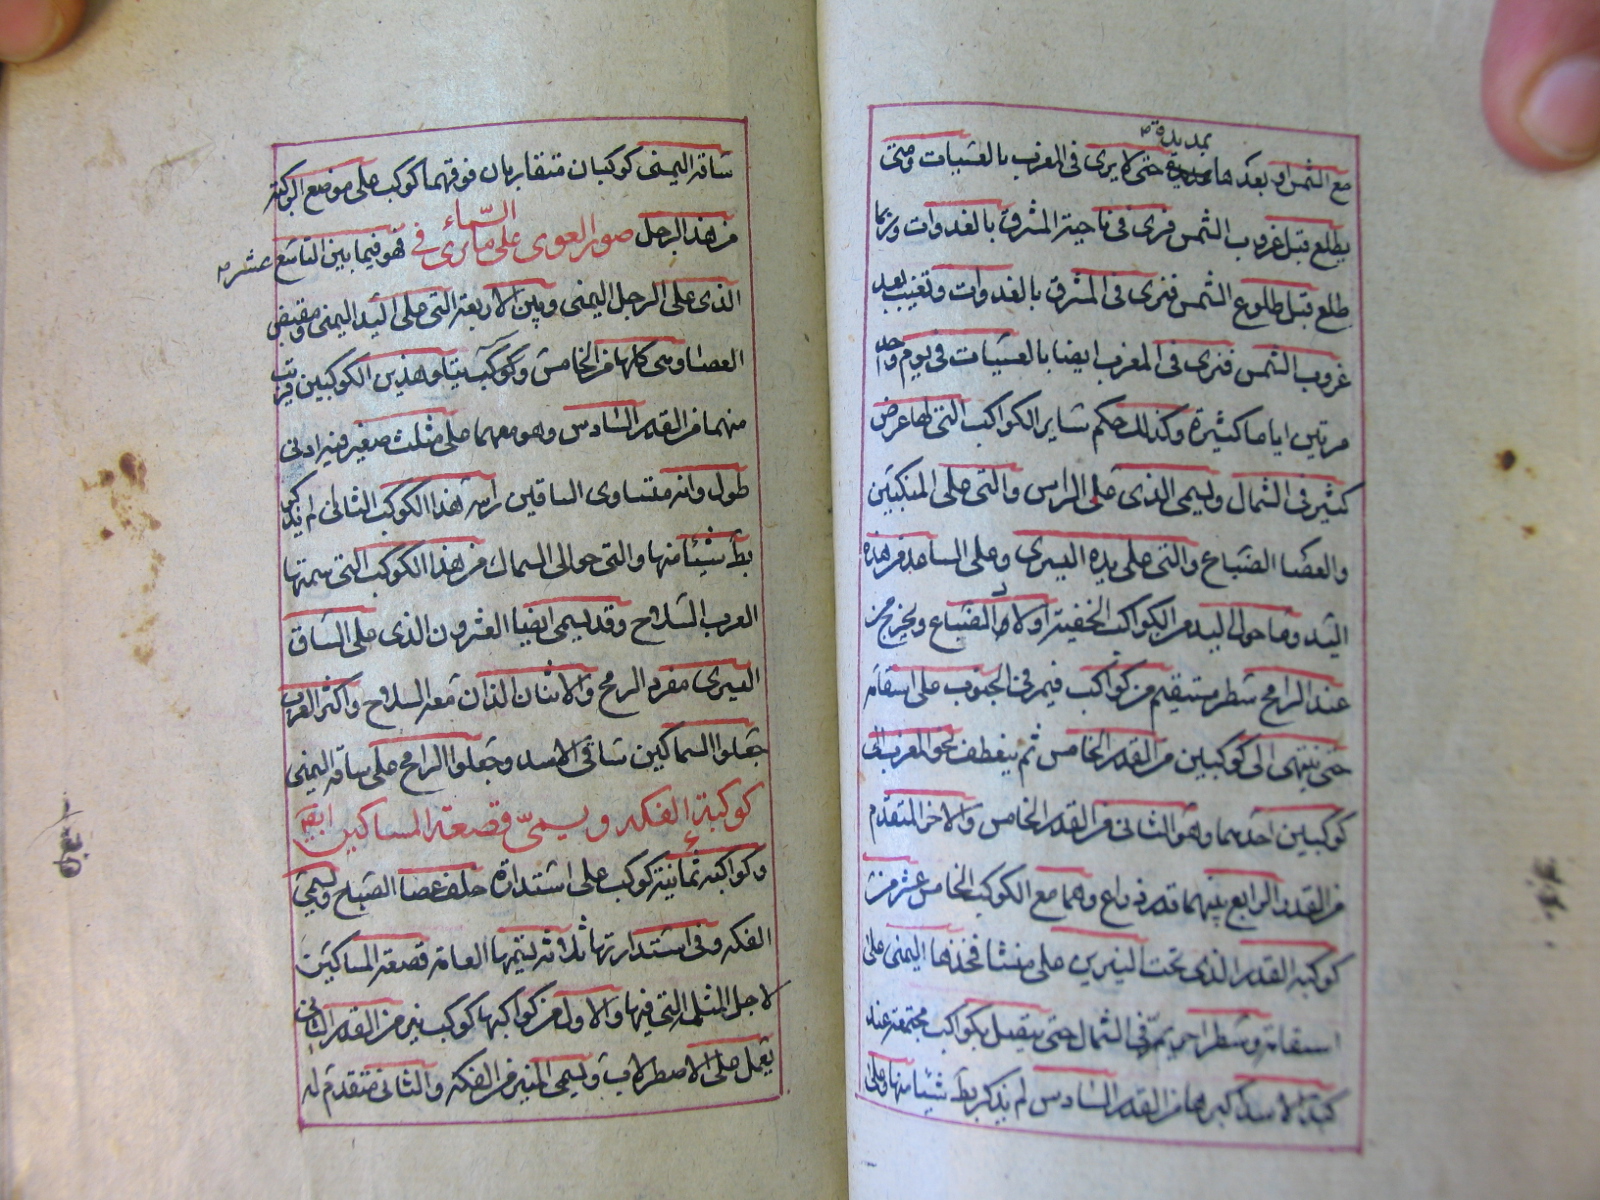 بمديدة
مع الشمس او بعدها بمديدة حتى لا يرى فى المغرب بالعشيات ومتى
يطلع قبل غروب الشمس فيرى فى ناحية المشرق بالغدوات وربما
طلع قبل طلوع الشمس فيرى فى المشرق بالغدوات وتغيب بعد
غروب الشمس فيرى فى المغرب ايضا بالعشيات فى يوم واحد
مرتين اياما كثيرة وكذلك حكم ساير الكواكب التى لها عرض
كثير فى الشمال ويسمى الذى على الراس والتى على المنكبين
والعصا الضباع والتى على يده اليسرى وعلى الساعد من هذه
اليد وما حوالى اليد من الكواكب الخفية اولاد الضباع ويخرج من
عند الرامح سطر مستقيم من كواكب فيمر فى الجنوب على استقامة
حتى ينتهى الى كوكبين من القدر الخامس ثم ينعطف نحو المغرب الى
كوكبين احدهما وهو الثانى من القدر الخامس والاخر المتقدم
من القدر الرابع بينهما قدر ذراع وهما مع الكوكب الخامس عشر من
كوكبه القدر الذى تحت النيرين على منشا فخذها اليمنى على
استقامة وسطر اخر يمر فى الشمال حتى يتصل بكواكب مجتمعة عند
كبد الاسد اكبرها من القدر السادس لم يذكر بط شيئا منها وعلى
ساقه اليمنى كوكبان متقاربان فوقهما كوكب على موضع الركبة
من هذا الرجل صورة العوى على ما يرى فى السماء فهو فيما بين التاسع عشر
الذى على الرجل اليمنى وبين الاربعة التى على اليد اليمنى ومقبض
العصا وهى كلها من الخامس وكوكب يتلو هذين الكوكبين قريب
منهما من القدر السادس وهو معهما على مثلث صغير فيه ادنى
طول وانه متساوى الساقين راسه هذا الكوكب الثانى لم يذكر
بط شيئا منها والتى حوالى السماك من هذا الكوكب التى سمتها
العرب السلاح وقد يسمى ايضا العشرون الذى على الساق
اليسرى مفرد الرمح والاثنان الذان معه السلاح واكثر العرب
جعلوا السماكين ساقى الاسد وجعلوا الرامح على ساقه اليمنى
كوكبة الفكه ويسمى قصعة المساكين ايضا
وكواكبه ثمانية كوكب على استدارة خلف عصا الضباع ويسمى
الفكه وفى استدارتها ثلمة ليسميها العامة قصعة المساكين
لاجل الثلمة التى فيها والاول من كواكبها كوكب نير من القدر الثانى
يعمل على الاصطرلاب ويسمى المنير من الفكه والثانى متقدم له